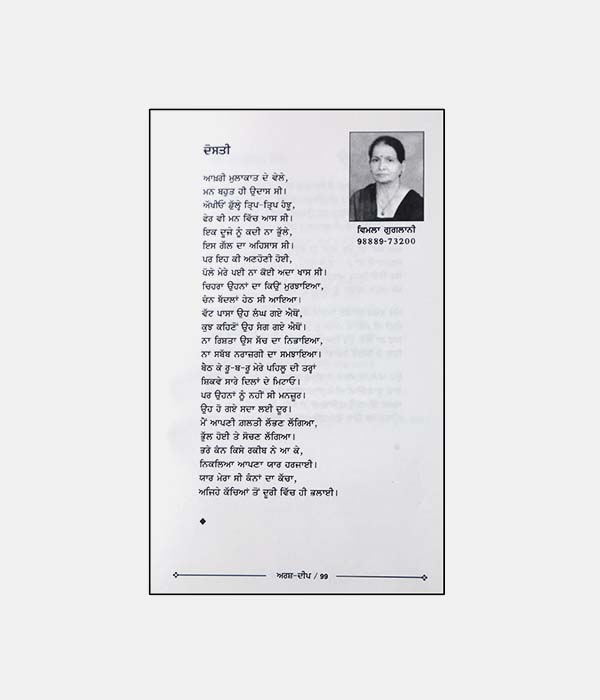 ਦੋਸਤੀ
ਆਖ਼ਰੀ ਮੁਲਾਕਾਤ ਦੇ ਵੇਲੇ,
ਮਨ ਬਹੁਤ ਹੀ ਉਦਾਸ ਸੀ।
ਅੱਖੀਓਂ ਡੁੱਲ੍ਹੇ ਤ੍ਰਿਪ-ਤ੍ਰਿਪ ਹੰਝੂ,
ਫੇਰ ਵੀ ਮਨ ਵਿੱਚ ਆਸ ਸੀ।
ਇਕ ਦੂਜੇ ਨੂੰ ਕਦੀ ਨਾ ਭੁੱਲੇ,
ਇਸ ਗੱਲ ਦਾ ਅਹਿਸਾਸ ਸੀ।
ਪਰ ਇਹ ਕੀ ਅਣਹੋਣੀ ਹੋਈ,
ਪੱਲੇ ਮੇਰੇ ਪਈ ਨਾ ਕੋਈ ਅਦਾ ਖਾਸ ਸੀ।
ਚਿਹਰਾ ਉਹਨਾਂ ਦਾ ਕਿਉਂ ਮੁਰਝਾਇਆ,
ਚੰਨ ਬੱਦਲਾਂ ਹੇਠ ਸੀ ਆਇਆ।
ਵੱਟ ਪਾਸਾ ਉਹ ਲੰਘ ਗਏ ਐਥੋਂ,
ਕੁਝ ਕਹਿਣੋਂ ਉਹ ਸੰਗ ਗਏ ਐਥੋਂ।
ਨਾ ਰਿਸ਼ਤਾ ਉਸ ਸੱਚ ਦਾ ਨਿਭਾਇਆ,
ਨਾ ਸਬੱਬ ਨਰਾਜ਼ਗੀ ਦਾ ਸਮਝਾਇਆ।
ਬੈਠ ਕੇ ਰੂ-ਬ-ਰੂ ਮੇਰੇ ਪਹਿਲੂ ਦੀ ਤਰ੍ਹਾਂ
ਸ਼ਿਕਵੇ ਸਾਰੇ ਦਿਲਾਂ ਦੇ ਮਿਟਾਓ।
ਪਰ ਉਹਨਾਂ ਨੂੰ ਨਹੀਂ ਸੀ ਮਨਜ਼ੂਰ।
ਉਹ ਹੋ ਗਏ ਸਦਾ ਲਈ ਦੂਰ।
ਮੈਂ ਆਪਣੀ ਗ਼ਲਤੀ ਲੱਭਣ ਲੱਗਿਆ,
ਭੁੱਲ ਹੋਈ ਤੇ ਸੋਚਣ ਲੱਗਿਆ।
ਭਰੇ ਕੰਨ ਕਿਸੇ ਰਕੀਬ ਨੇ ਆ ਕੇ,
ਨਿਕਲਿਆ ਆਪਣਾ ਯਾਰ ਹਰਜਾਈ।
ਯਾਰ ਮੇਰਾ ਸੀ ਕੰਨਾਂ ਦਾ ਕੱਚਾ,
ਅਜਿਹੇ ਕੱਚਿਆਂ ਤੋਂ ਦੂਰੀ ਵਿੱਚ ਹੀ ਭਲਾਈ।
ਵਿਮਲਾ ਗੁਗਲਾਨੀ
98889-73200
ਅਰਸ਼-ਦੀਪ / 99